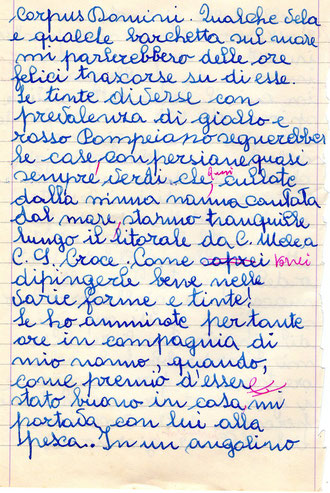 Corpus Domini. Qualche vela
e qualche barchetta sul mare
mi parlerebbero delle ore
felici trascorse su di esse.
Le tinte diverse con
prevalenza di giallo e
rosso Pompeiano segnerebbero
le case, con persiane quasi
sempre verdi, che quasi cullate
dalla ninna nanna cantata
dal mare, stanno tranquille
lungo il litorale da C. Molea
C. S. Croce. Come saprei vorrei
dipingerle bene nelle
varie forme e tinte!
Le ho ammirate per tante
ore in compagnia di
mio nonno, quando,
come premio d'essere
stato buono in casa mi
portava con lui alla
pesca.. In un angolino